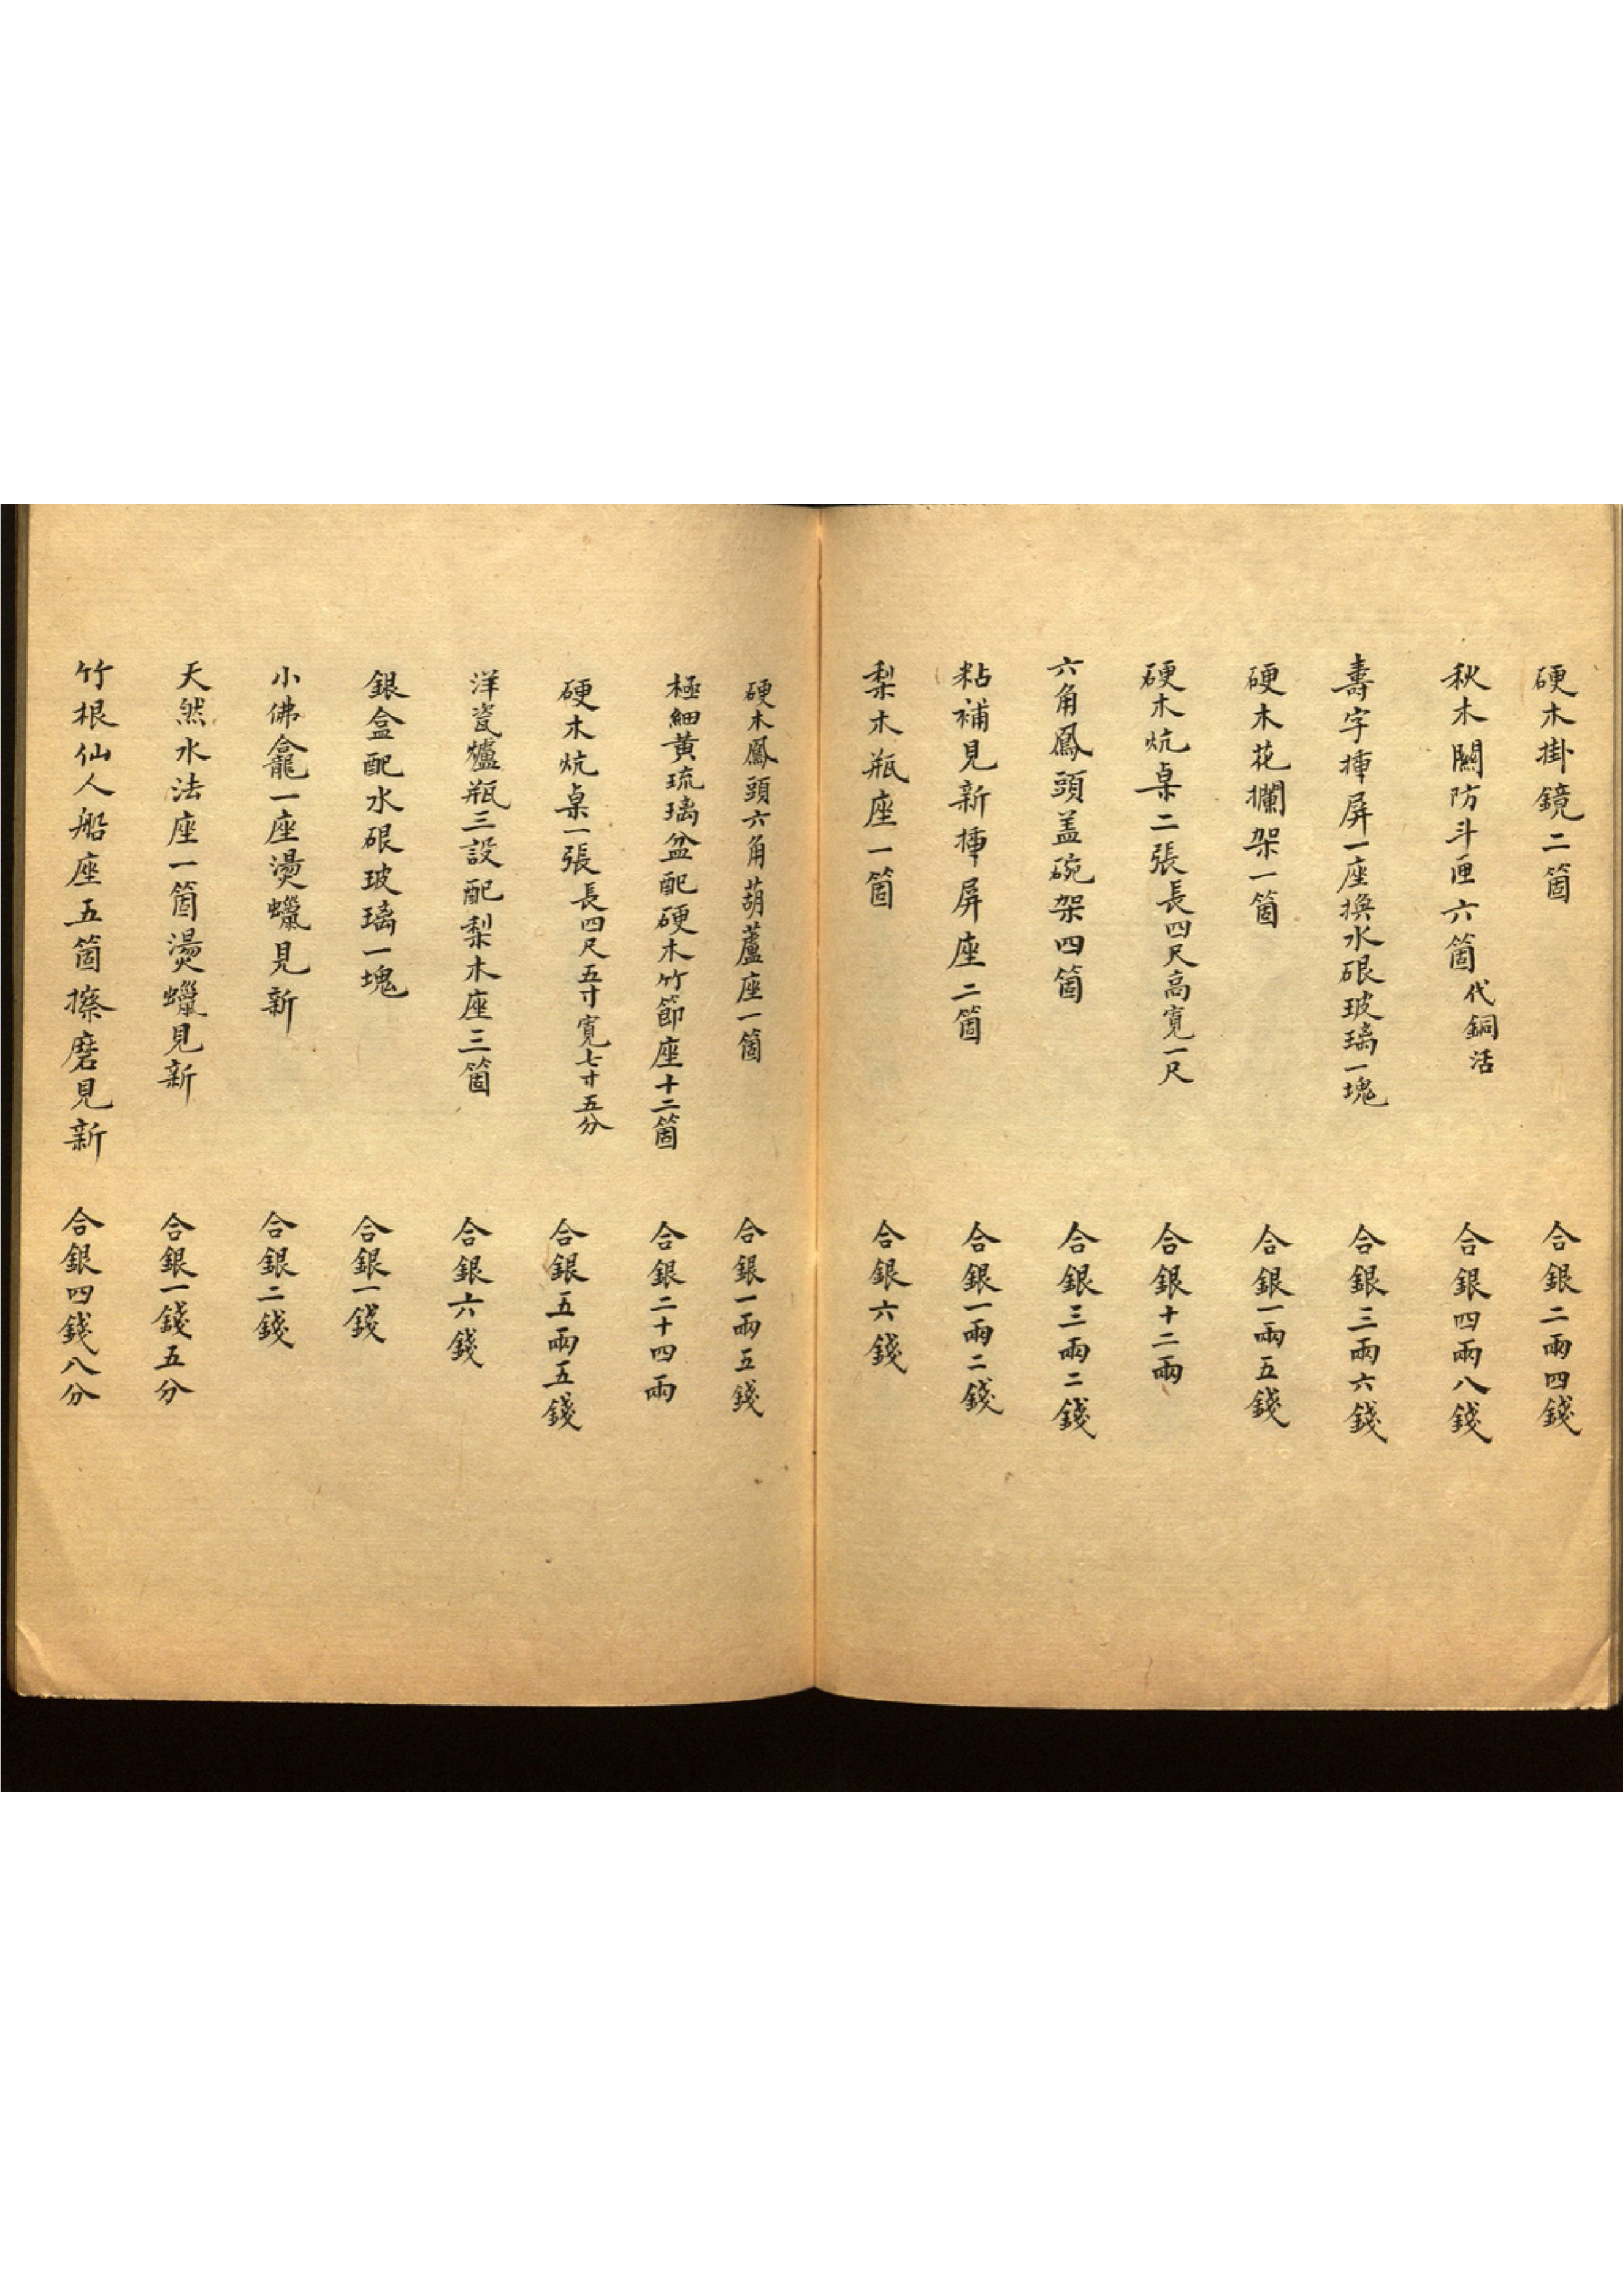 硬木掛鏡二箇　合銀二兩四錢
秋木關防斗匣六箇代銅活　合銀四兩八錢
壽字揷屏一座換水硍玻璃一塊　合銀三兩六錢
硬木花欄架一箇　合銀一兩五錢
硬木炕桌二張長四尺高寬一尺　合銀十二兩
六角鳳頭盖碗架四箇　合銀三兩二錢
粘補見新揷屏座二箇　合銀一兩二錢
梨木瓶座一箇　合銀六錢
硬木鳳頭六角葫蘆座一箇　合銀一兩五錢
極細黃琉璃盆配硬木竹節座十二箇　合銀二十四兩
硬木炕桌一張長四尺五寸寬七寸五分　合銀五兩五錢
洋瓷爐瓶三設配梨木座三箇　合銀六錢
銀盒配水硍玻璃一塊　合銀一錢
小佛龕一座燙蠟見新　合銀二錢
天然水法座一箇燙蠟見新　合銀一錢五分
竹根仙人船座五箇擦磨見新　合銀四錢八分